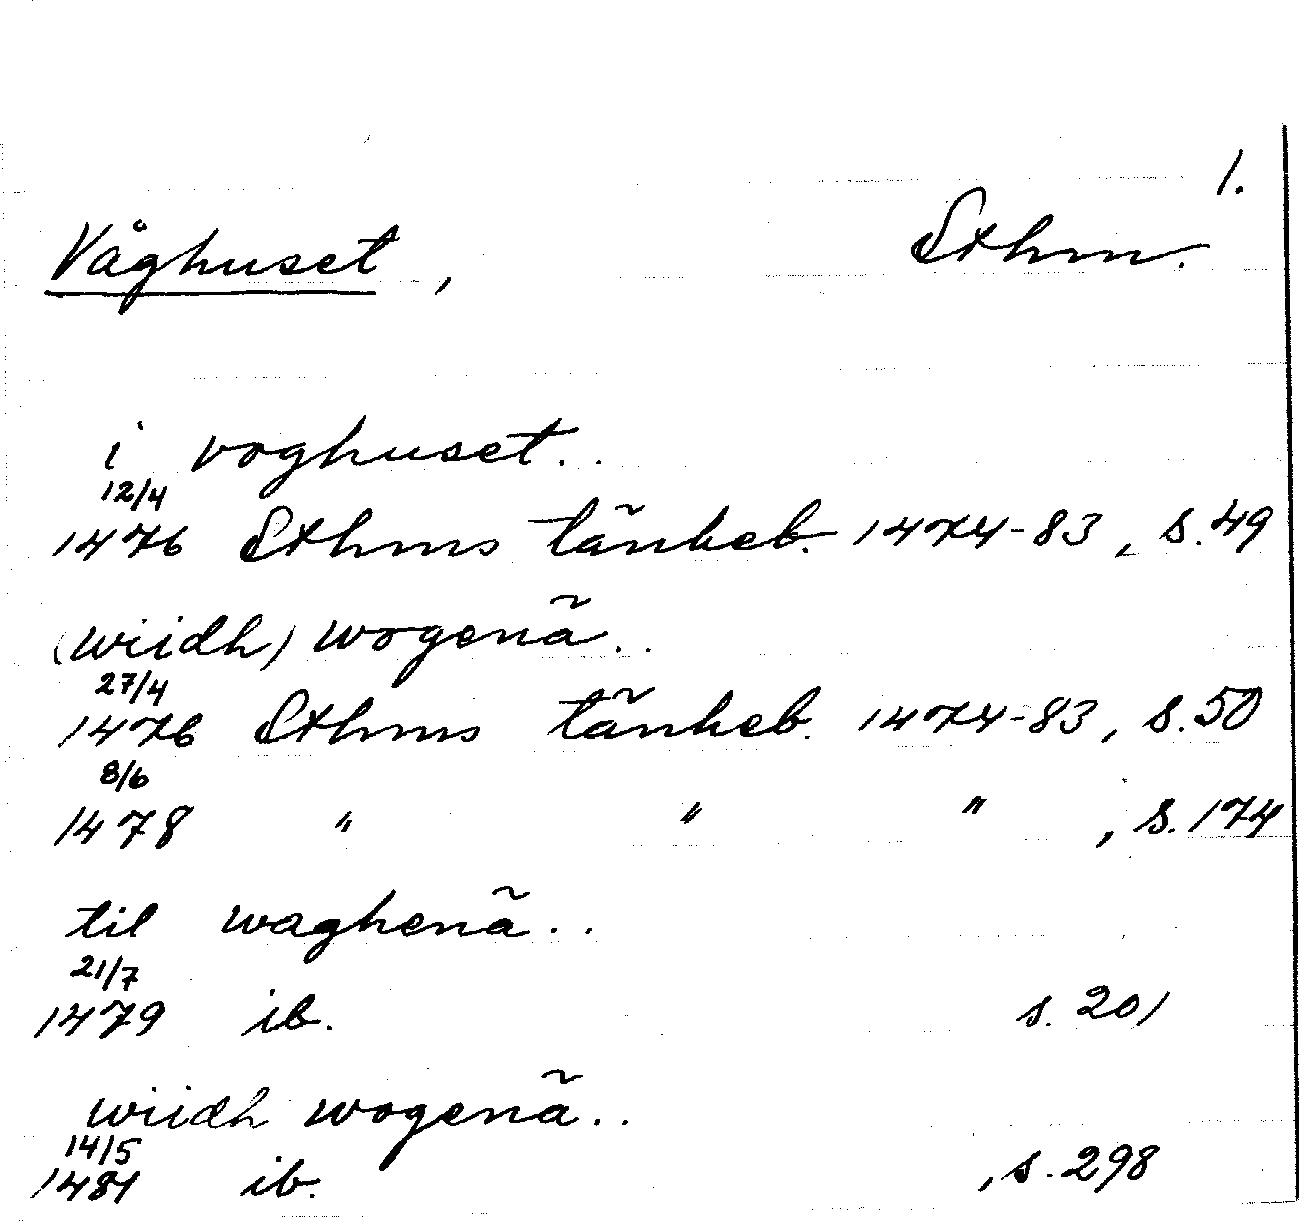 1.
Våghuset, Sthm.
i voghuset..
12/4
1476 Sthms tänkeb. 1474-83, s. 49
(wiidh) wogenä..
27/4
1476 Sthms tänkeb. 1474-83, s. 50
8/6
1478 " " ", s. 174
til waghenä..
21/7
1479 ib. s. 201
wiidh wogenä..
14/5
1481 ib. , s. 298